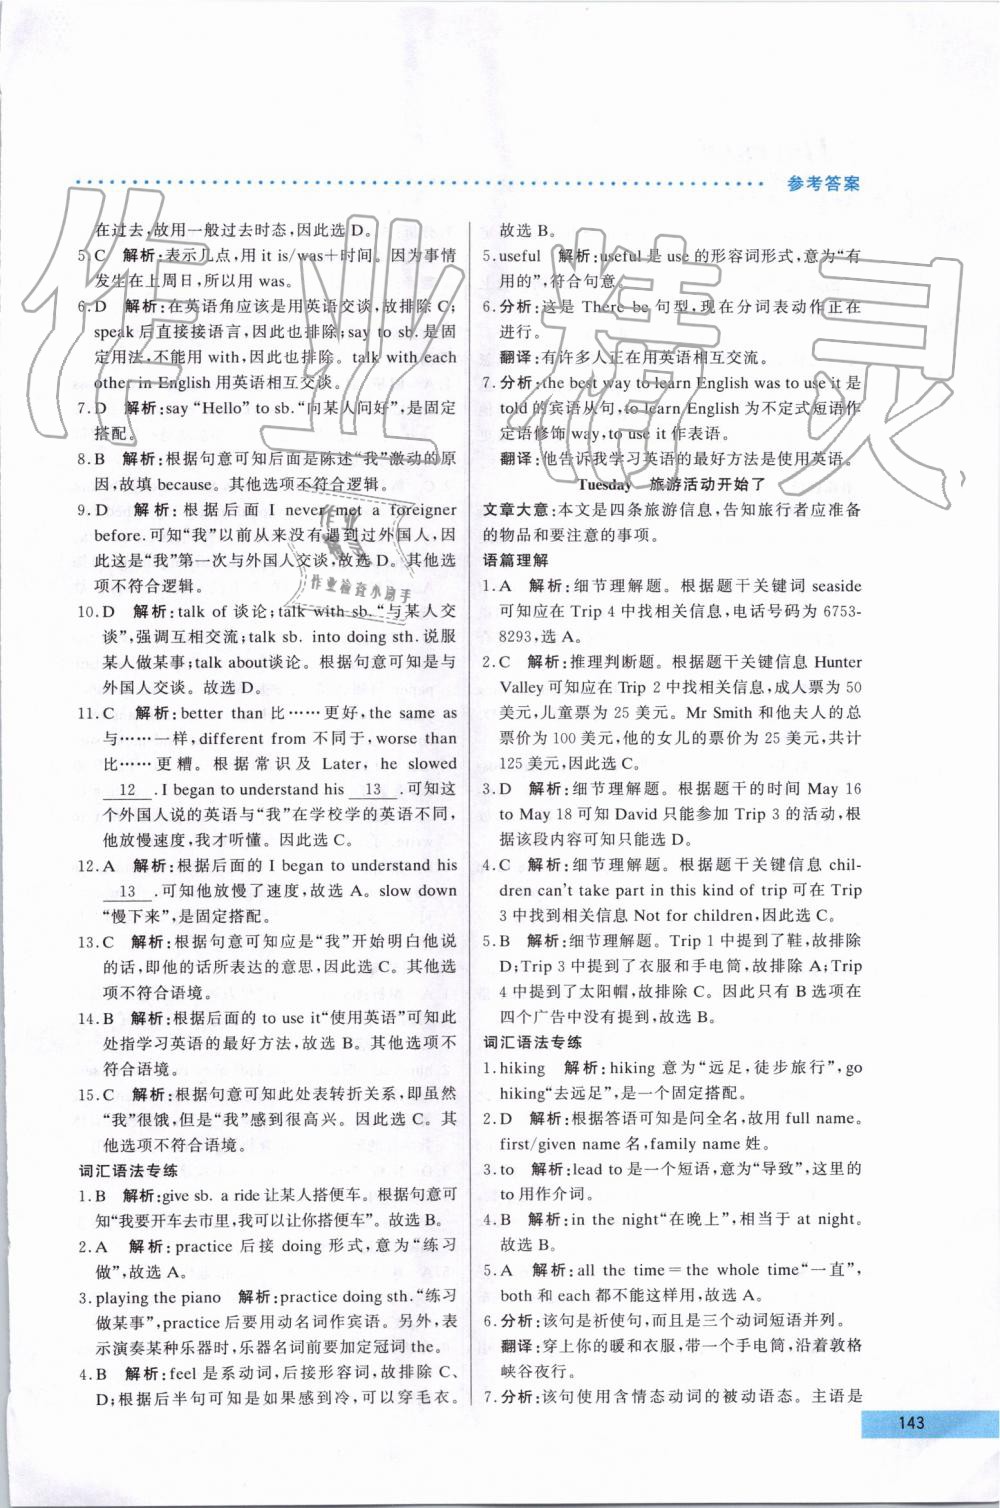 参考答案
在过去,故用一般过去时态,因此选 D。
5. C 解析:表示几点,用 it is/was+时间。因为事情
发生在上周日,所以用 was。
6. D 解析:在英语角应该是用英语交谈,故排除 C;
speak 后直接接语言,因此也排除;say to sb. 是固
定用法,不能用 with,因此也排除。talk with each
other in English 用英语相互交谈。
7. D 解析:say “Hello” to sb.“向某人问好”,是固定
搭配。
8. B 解析:根据句意可知后面是陈述“我”激动的原
因,故填 because。其他选项不符合逻辑。
9. D 解析:根据后面 I never met a foreigner
before.可知“我”以前从来没有遇到过外国人,因
此这是“我”第一次与外国人交谈,故选 D。其他选
项不符合逻辑。
10. D 解析:talk of 谈论;talk with sb.“与某人交
谈”,强调互相交流;talk sb. into doing sth.说服
某人做某事;talk about谈论。根据句意可知是与
外国人交谈。故选 D。
11. C 解析:better than 比……更好,the same as
与……一样,different from 不同于,worse than
比……更糟。根据常识及 Later, he slowed
12 . I began to understand his 13 .可知这
个外国人说的英语与“我”在学校学的英语不同,
他放慢速度,我才听懂。因此选 C。
12. A 解析:根据后面的 I began to understand his
13 .可知他放慢了速度,故选 A。slow down
“慢下来”,是固定搭配。
13. C 解析:根据句意可知应是“我”开始明白他说
的话,即他的话所表达的意思,因此选 C。其他选
项不符合语境。
14. B 解析:根据后面的 to use it“使用英语”可知此
处指学习英语的最好方法,故选 B。其他选项不
符合语境。
15. C 解析:根据句意可知此处表转折关系,即虽然
“我”很饿,但是“我”感到很高兴。因此选 C。其
他选项不符合语境。
词汇语法专练
1. B 解析:give sb. a ride 让某人搭便车。根据句意可
知“我要开车去市里,我可以让你搭便车”。故选 B。
2. A 解析:practice 后接 doing 形式,意为“练习
做”,故选 A。
3. playing the piano 解析:practice doing sth.“练习
做某事”,practice 后要用动名词作宾语。另外,表
示演奏某种乐器时,乐器名词前要加定冠词 the。
4. B 解析:feel 是系动词,后接形容词,故排除 C、
D;根据后半句可知是如果感到冷,可以穿毛衣。
故选 B。
5. useful 解析:useful 是 use 的形容词形式,意为“有
用的”,符合句意。
6. 分析:这是 There be 句型,现在分词表动作正在
进行。
翻译:有许多人正在用英语相互交流。
7. 分析:the best way to learn English was to use it 是
told 的宾语从句,to learn English 为不定式短语作
定语修饰 way,to use it 作表语。
翻译:他告诉我学习英语的最好方法是使用英语。
Tuesday 旅游活动开始了
文章大意:本文是四条旅游信息,告知旅行者应准备
的物品和要注意的事项。
语篇理解
1. A 解析:细节理解题。根据题干关键词 seaside
可知应在 Trip 4 中找相关信息,电话号码为 6753-
8293,选 A。
2. C 解析:推理判断题。根据题干关键信息 Hunter
Valley 可知应在 Trip 2 中找相关信息,成人票为 50
美元,儿童票为 25 美元。Mr Smith 和他夫人的总
票价为 100 美元,他的女儿的票价为 25 美元,共计
125 美元,因此选 C。
3. D 解析:细节理解题。根据题干的时间 May 16
to May 18 可知 David 只能参加 Trip 3 的活动,根
据该段内容可知只能选 D。
4. C 解析:细节理解题。根据题干关键信息 chil-
dren can’t take part in this kind of trip 可在 Trip
3 中找到相关信息 Not for children,因此选 C。
5. B 解析:细节理解题。Trip 1 中提到了鞋,故排除
D;Trip 3 中提到了衣服和手电筒,故排除 A;Trip
4 中提到了太阳帽,故排除 C。因此只有 B 选项在
四个广告中没有提到,故选 B。
词汇语法专练
1. hiking 解析:hiking 意为“远足,徒步旅行”,go
hiking“去远足”,是一个固定搭配。
2. D 解析:根据答语可知是问全名,故用 full name。
first/given name 名,family name 姓。
3. to 解析:lead to 是一个短语,意为“导致”,这里的
to 用作介词。
4. B 解析:in the night“在晚上”,相当于 at night。
故选 B。
5. A 解析:all the time=the whole time“一直”,
both 和 each 都不能这样用,故选 A。
6. 分析:该句是祈使句,而且是三个动词短语并列。
翻译:穿上你的暖和衣服,带一个手电筒,沿着敦格
峡谷夜行。
7. 分析:该句使用含情态动词的被动语态。主语是
143
作业精灵
作业
精灵
作业检查小助手